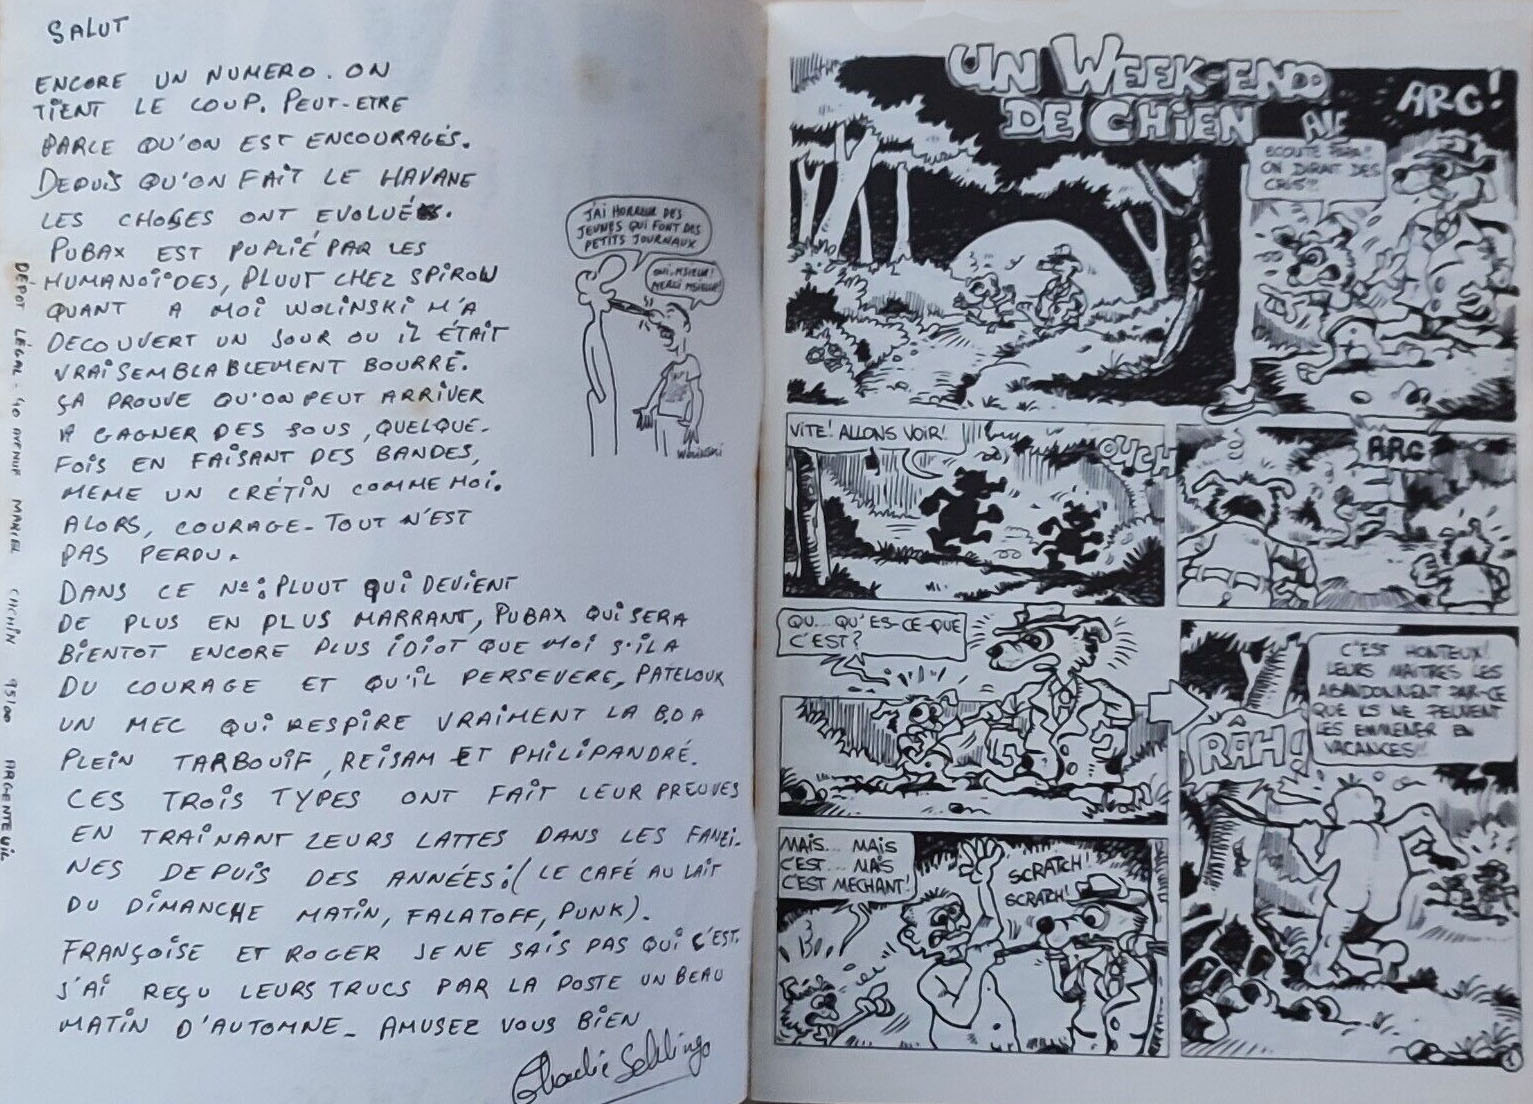 SALUT
ENCORE UN NUMERO. ON
TIENT LE COUP. PEUT-ETRE
PARCE QU'ON EST ENCOURAGÉS.
DEPUIS QU'ON FAIT LE HAVANE
LES CHOSES ONT EVOLUÉ.
PUBAX EST PUPLIÉ PAR LES
HUMANOÏDES, PLUUT CHEZ SPIROU
QUANT A MOI WOLINSKI M'A
DECOUVERT UN JOUR OU IL ÉTAIT
VRAISEMBLABLEMENT BOURRÉ.
ÇA PROUVE QU'ON PEUT ARRIVER
A GAGNER DES SOUS, QUELQUE-
FOIS EN FAISANT DES BANDES,
MEME UN CRÉTIN COMME MOI.
ALORS, COURAGE - TOUT N'EST
PAS PERDU.
DANS CE No: PLUUT QUI DEVIENT
DE PLUS EN PLUS MARRANT, PUBAX QUI SERA
BIENTOT ENCORE PLUS IDIOT QUE MOI S'IL A
DU COURAGE ET QU'IL PERSEVERE, PATELOUX
UN MEC QUI RESPIRE VRAIMENT LA B.D A
PLEIN TARBOUIF, REISAM ET PHILIPANDRÉ.
CES TROIS TYPES ONT FAIT LEUR PREUVES
EN TRAINANT LEURS LATTES DANS LES FANZI-
NES DEPUIS DES ANNÉES: (LE CAFÉ AU LAIT
DU DIMANCHE MATIN, FALATOFF, PUNK).
FRANÇOISE ET ROGER JE NE SAIS PAS QUI C'EST.
J'AI REÇU LEURS TRUCS PAR LA POSTE UN BEAU
MATIN D'AUTOMNE - AMUSEZ VOUS BIEN
Charlie Schlingo
DÉPOT LÉGAL - 40 AVENUE MARCEL CACHIN 95100 ARGENTEUIL
J'AI HORREUR DES
JEUNES QUI FONT DES
PETITS JOURNAUX
OUI, MSIEUR!
MERCI MSIEUR!
Wolinski
UN WEEK-END
DE CHIEN
AIE
ARG!
ECOUTE PAPA!
ON DIRAIT DES
CRIS!!
VITE! ALLONS VOIR!
OUCH
ARG
QU... QU'ES-CE-QUE
C'EST?
C'EST HONTEUX!
LEURS MAITRES LES
ABANDONNENT PAR-CE
QUE ILS NE PEUVENT
LES EMMENER EN
VACANCES!!
RÂH!
MAIS... MAIS
C'EST... MAIS
C'EST MECHANT!
SCRATCH!
SCRATCH!
1